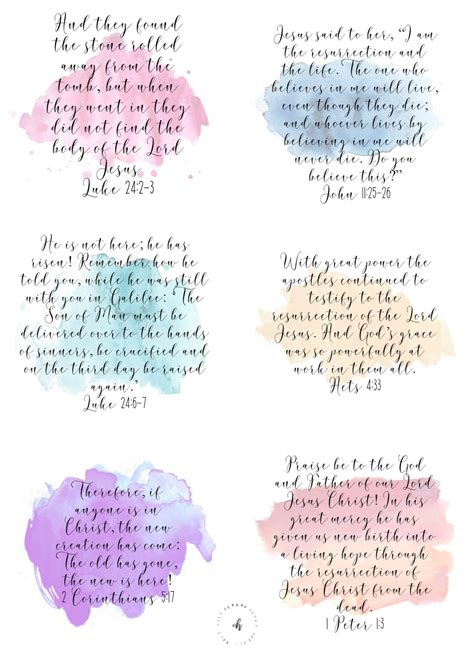 And they found
the stone rolled
away from the
tomb, but when
they went in they
did not find the
body of the Lord
Jesus
Luke 24:2-3
Jesus said to her, "I am
the resurrection and
the life. The one who
believes in me will live,
even though they die;
and whoever lives by
believing in me will
never die. Do you
believe this?"
John 11:25-26
He is not here; he has
risen! Remember how he
told you, while he was still
with you in Galilee: 'The
Son of Man must be
delivered over to the hands
of sinners, be crucified and
on the third day be raised
again.'
Luke 24:6-7
With great power the
apostles continued to
testify to the
resurrection of the Lord
Jesus. And God's grace
was so powerfully at
work in them all.
Acts 4:33
Therefore, if
anyone is in
Christ, the new
creation has come:
The old has gone,
the new is here!
2 Corinthians 5:17
Praise be to the God
and Father of our Lord
Jesus Christ! In his
great mercy he has
given us new birth into
a living hope through
the resurrection of
Jesus Christ from the
dead.
1 Peter 1:3